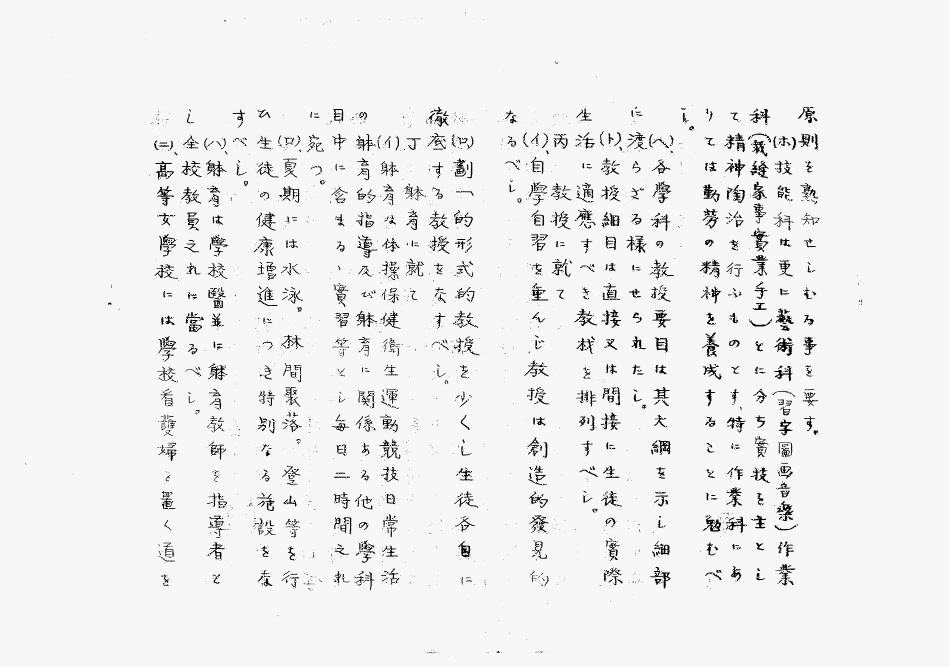 原則を熟知せしむる事を要す。
(ホ)技能科は更に藝術科(習字圖画音楽)作業
科(裁縫家事實業手工)とに分ち實技を主とし
て精神陶冶を行ふものとす、特に作業科にあ
りては勤労の精神を養成することに勉むべ
し。
(ヘ)各學科の教授要目は其大綱を示し細部
に渡らざる様にせられたし。
(ト)教授細目は直接又は間接に生徒の實際
生活に適應すべき教材を排列すべし。
丙 教授に就て
(イ)自學自習を重んじ教授は創造的發見的
なるべし。
(ロ)劃一的形式的教授を少くし生徒各自に
徹底する教授をなすべし。
丁 躰育に就て
(イ)躰育は体操保健衛生運動競技日常生活
の躰育的指導及び躰育に関係ある他の學科
目中に含まるゝ實習等とし毎日二時間之れ
に宛つ。
(ロ)、夏期には水泳。林間聚落。登山等を行
ひ生徒の健康増進につき特別なる施設をな
すべし。
(ハ)、躰育は學校醫並に躰育教師を指導者と
し全校教員之れに當るべし。
(ニ)、高等女學校には學校看護婦を置く道を